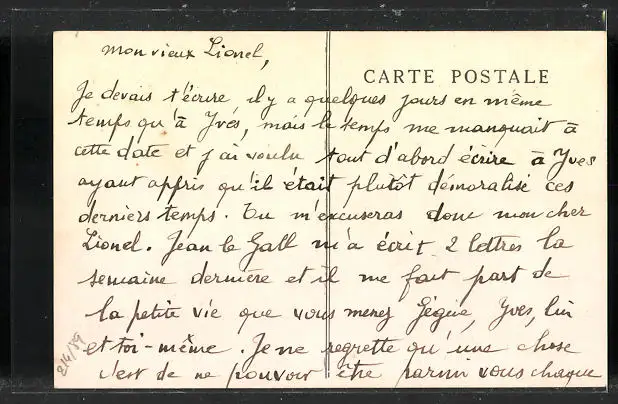 mon vieux Lionel,
CARTE POSTALE
Je devais t'écrire il y a quelques jours en même
temps qu'à Yves, mais le temps me manquait à
cette date et j'ai voulu tout d'abord écrire à Yves
ayant appris qu'il était plutôt démoralisé ces
derniers temps. Tu m'excuseras donc mon cher
Lionel. Jean le Gall m'a écrit 2 lettres la
semaine dernière et il me fait part de
la petite vie que vous menez Yves, lui
et toi-même. Je ne regrette qu'une chose
c'est de ne pouvoir être parmi vous chaque